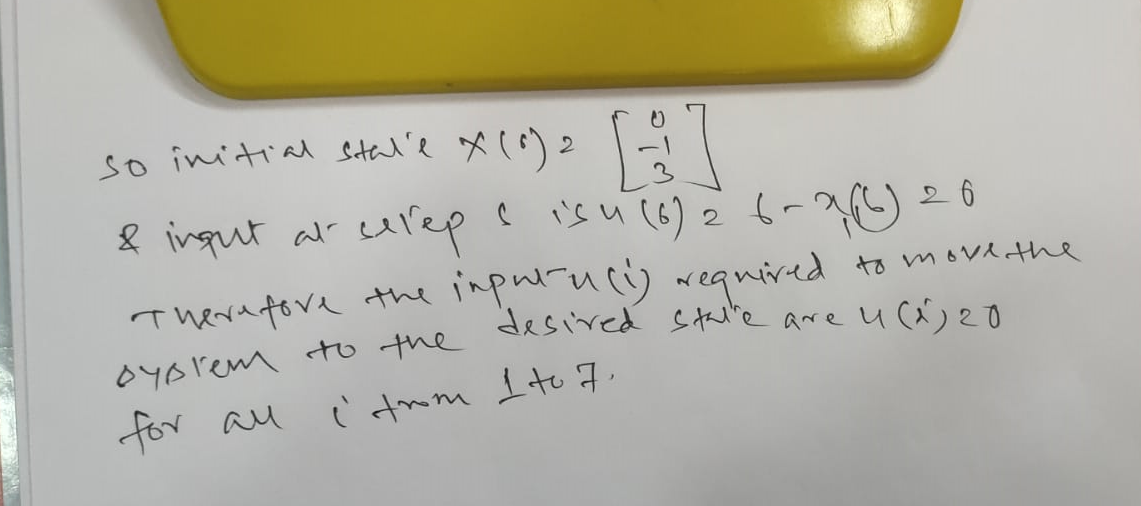 so initial state x(0) = [0 -1 3]
& input at step is u(6) = 6 - x₁(6) = 6
Therefore the input u(i) required to move the
system to the desired state are u(i) = 0
for all i from 1 to 7.